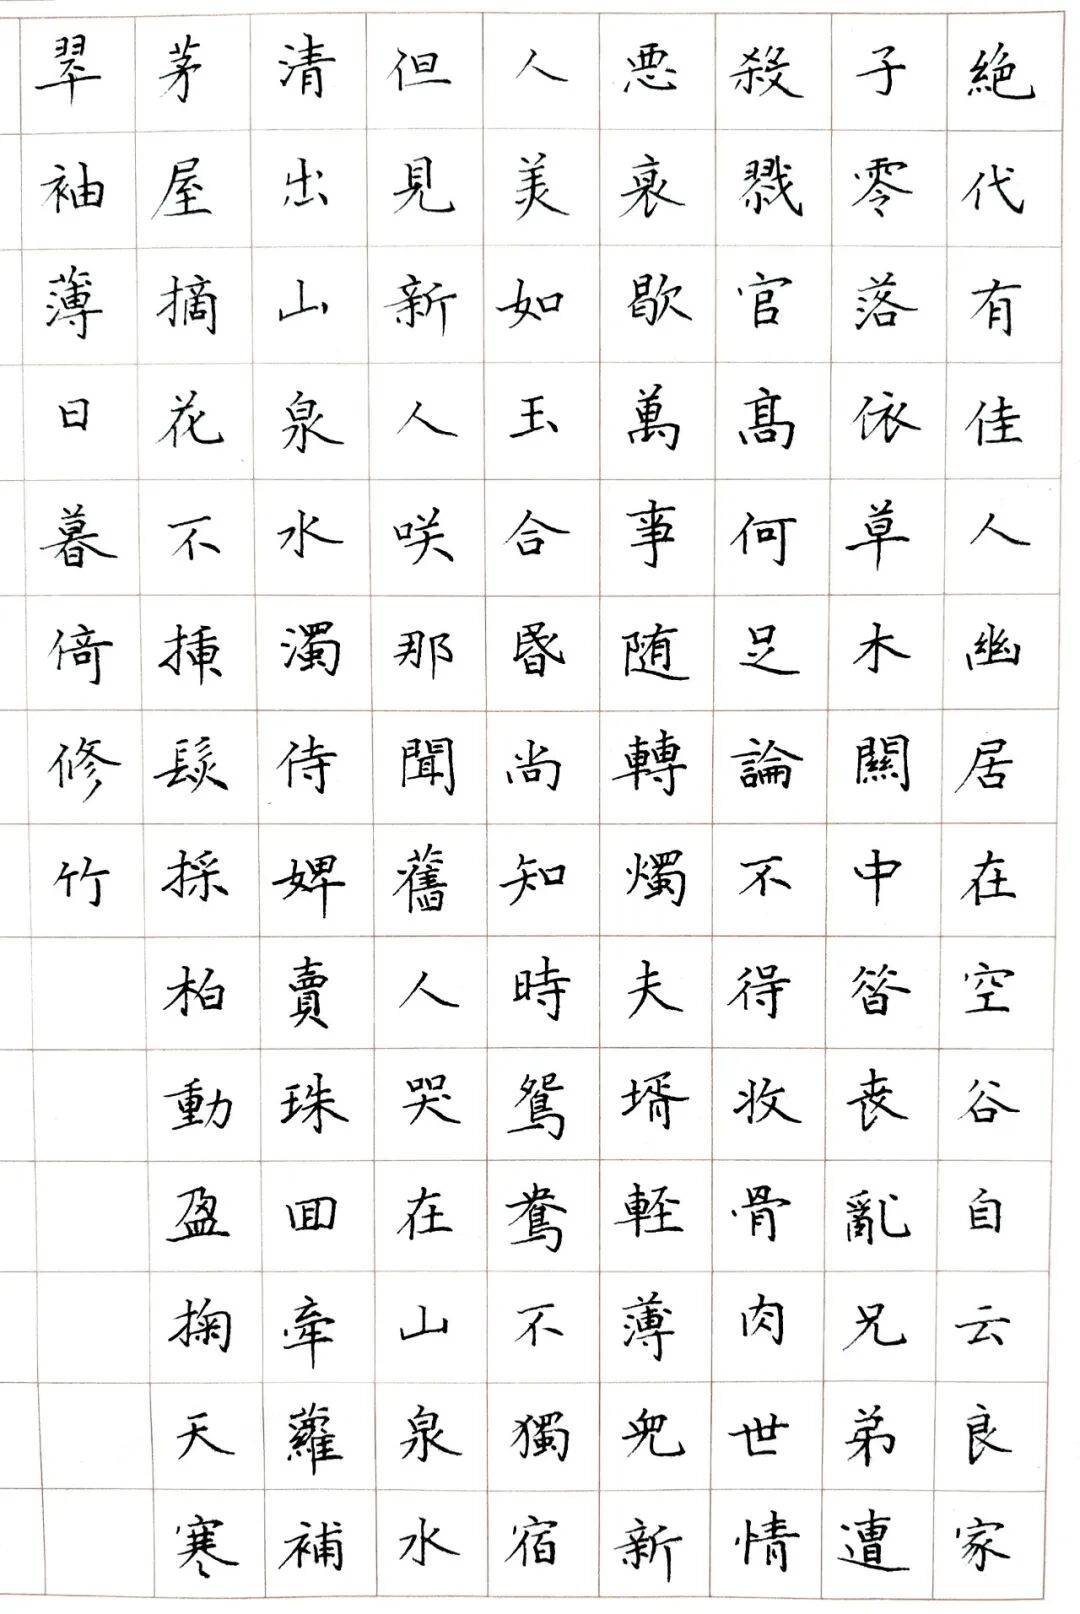 絶代有佳人幽居在空谷自云良家
子零落依草木關中昔喪亂兄弟遭
殺戮官髙何足論不得收骨肉世情
悪衰歇萬事随轉燭夫壻輕薄兒新
人美如玉合昬尚知時鴛鴦不獨宿
但見新人咲那聞舊人哭在山泉水
清出山泉水濁侍婢賣珠囬牽蘿補
茅屋摘花不插髮採柏動盈掬天寒
翠袖薄日暮倚修竹